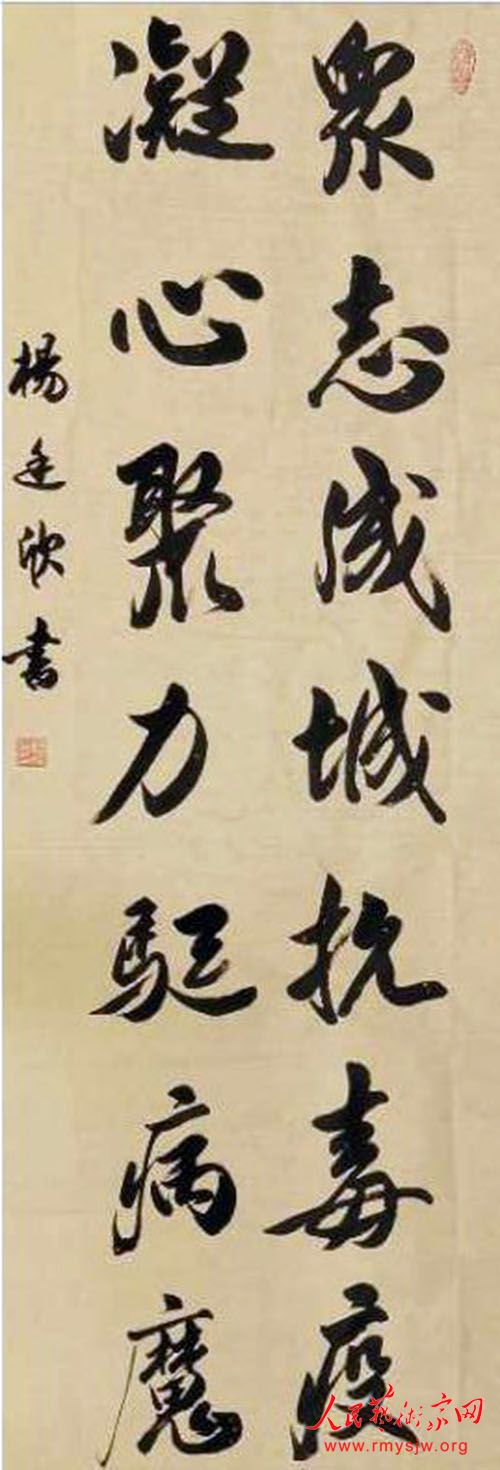 眾志成城抗毒疫
凝心聚力駆病魔
楊廷欣書
人民藝術家网
www.rmysjw.org